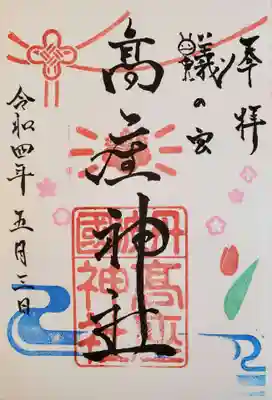 奉拝
蟻の宮
高座神社
令和四年五月三日
丹波國
高座
神社